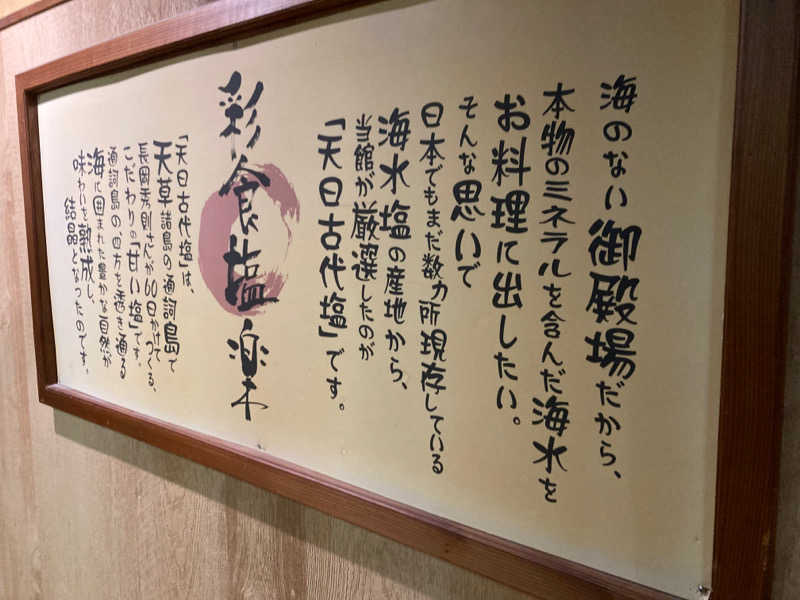 海のない御殿場だから、
本物のミネラルを含んだ海水を
お料理に出したい。
そんな思いで
日本でもまだ数カ所現存している
海水塩の産地から、
当館が厳選したのが
「天日古代塩」です。
彩食塩楽
「天日古代塩」は、
天草諸島の通詞島で
長岡秀則さんが60日かけてつくる、
こだわりの「甘い塩」です。
通詞島の、四方を透き通る
海に囲まれた豊かな自然が
味わいを熟成し、
結晶となったのです。